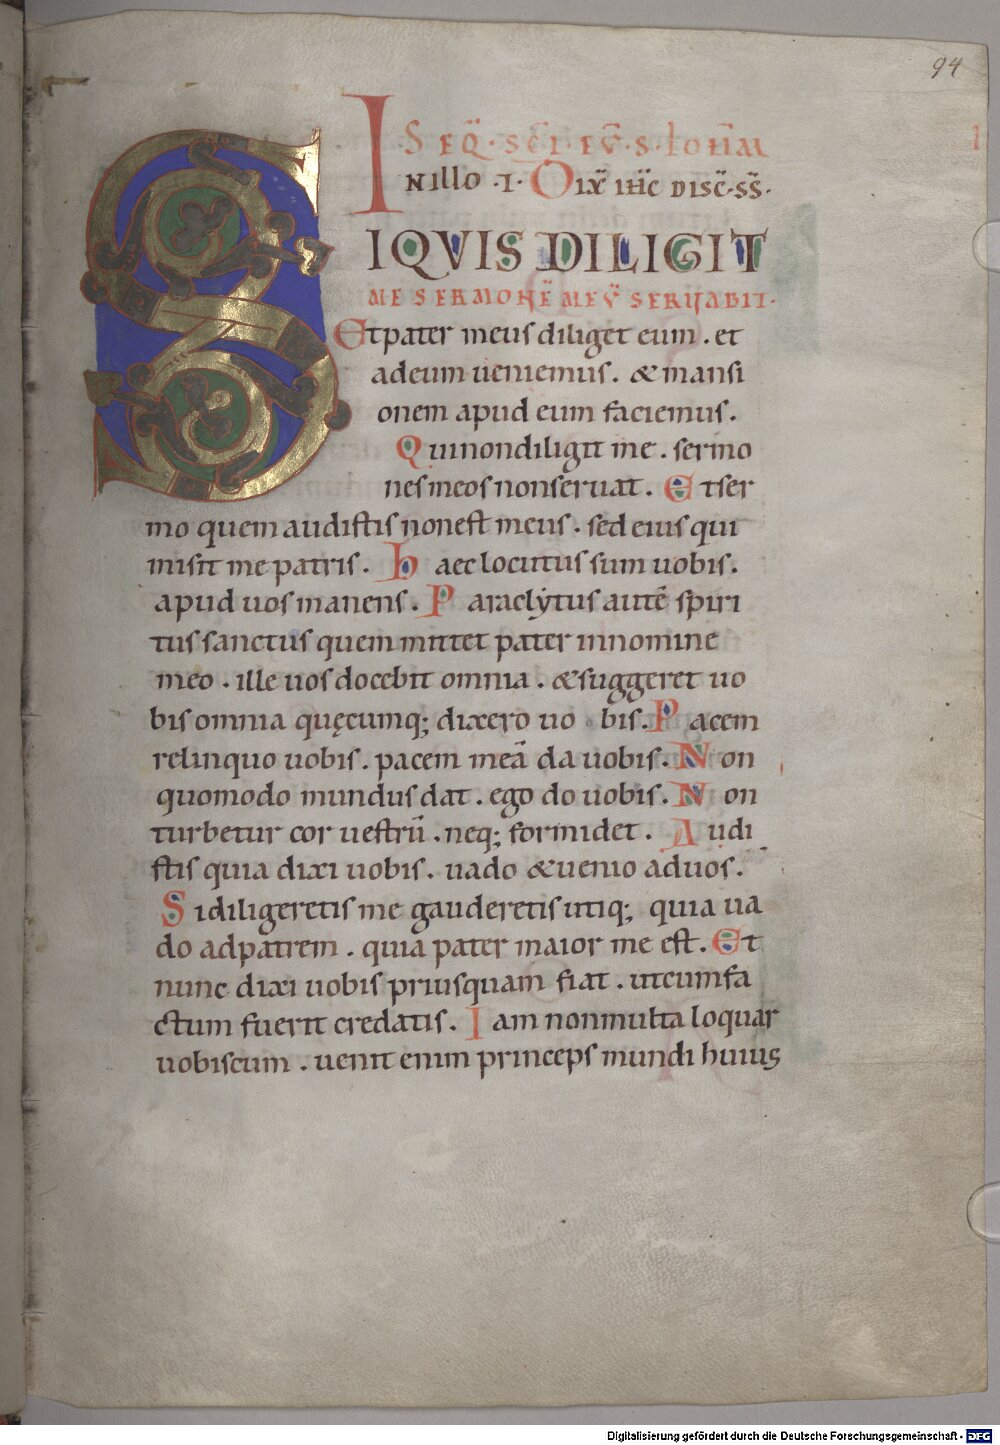 94
SEQ̄·SC̄I·EV̄·S·IOHM̄
IN illo ·T· Dix̄ ih̄c DISC̄·SS̄·
SIQVIS DILIGIT
ME SERMONĒ MEV̄ SERUABIT·
Et pater meus diliget eum . et
adeum ueniemus . & mansi
onem apud eum faciemus .
Qui non diligit me . sermo
nes meos non seruat . Et ser
mo quem audistis non est meus . sed eius qui
misit me patris . haec locutus sum uobis .
apud uos manens . Paraclẏtus autē spiri
tus sanctus quem mittet pater in nomine
meo . ille uos docebit omnia . & suggeret uo
bis omnia quęcumq; dixero uo bis . Pacem
relinquo uobis . pacem meā da uobis . Non
quomodo mundus dat . ego do uobis . Non
turbetur cor uestrū . neq; formidet . Audi
stis quia dixi uobis . uado & uenio ad uos .
Si diligeretis me gauderetis utiq; quia ua
do ad patrem . quia pater maior me est . Et
nunc dixi uobis priusquam fiat . ut cum fa
ctum fuerit credatis . Iam non multa loquar
uobiscum . uenit enim princeps mundi huius
Digitalisierung gefördert durch die Deutsche Forschungsgemeinschaft - DFG